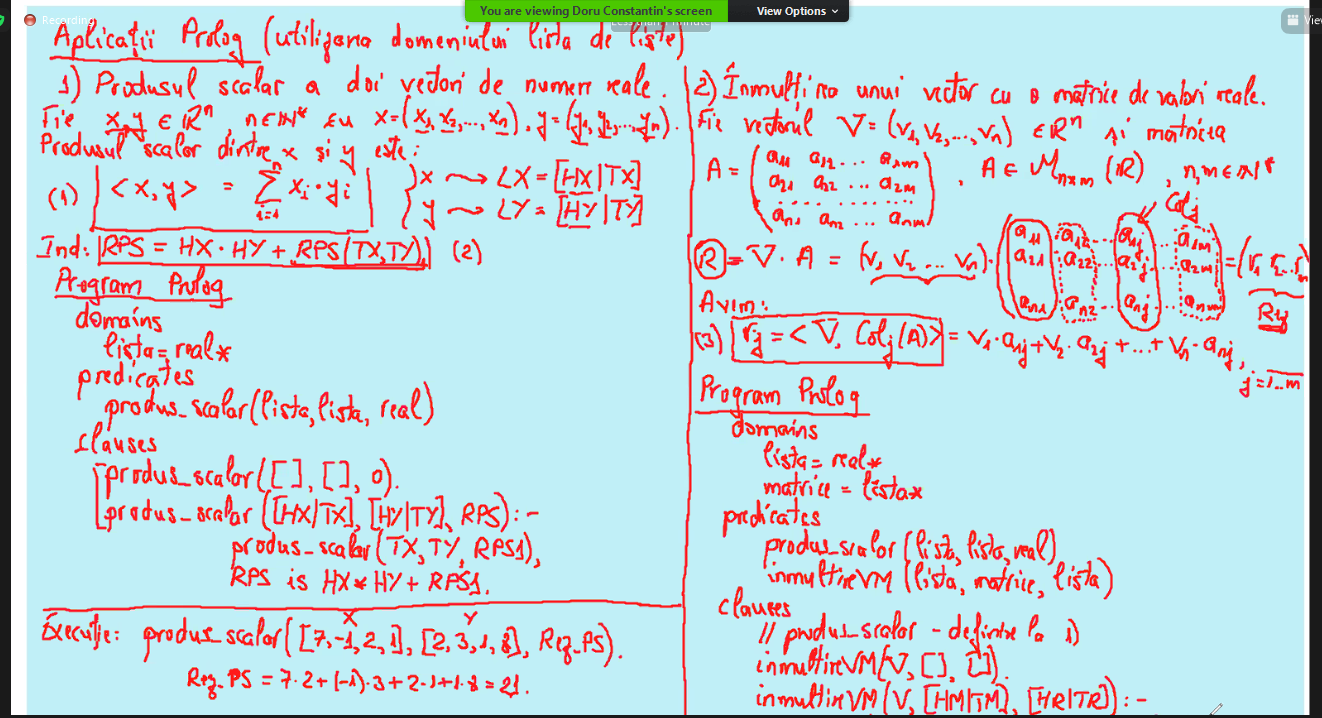 You are viewing Doru Constantin's screen
View Options
Recording
Aplicații Prolog (utilizarea domeniului lista de liste)
1) Produsul scalar a doi vectori de numere reale.
Fie x,y ∈ ℝⁿ n∈ℕ* cu x=(x₁,x₂,...,xₙ), y=(y₁,y₂,...,yₙ).
Produsul scalar dintre x și y este:
(1) <x,y> = Σⁿᵢ₌₁ xᵢ·yᵢ
x ⤳ LX = [HX|TX]
y ⤳ LY = [HY|TY]
Ind: RPS = HX·HY + RPS(TX,TY) (2)
Program Prolog
domains
lista=real*
predicates
produs_scalar(lista,lista, real)
clauses
produs_scalar([ ], [ ], 0).
produs_scalar([HX|TX], [HY|TY], RPS):-
produs_scalar(TX, TY, RPS1),
RPS is HX*HY + RPS1.
Execuție: produs_scalar([7,-1,2,1], [2,3,1,8], Rez_PS).
X Y
Rez_PS = 7·2+(-1)·3+2·1+1·8 = 21.
2) Înmulțirea unui vector cu o matrice de valori reale.
Fie vectorul V=(v₁,v₂,...,vₙ) ∈ℝⁿ și matricea
A = (a₁₁ a₁₂ ... a₁ₘ
a₂₁ a₂₂ ... a₂ₘ
..........
aₙ₁ aₙ₂ ... aₙₘ), A∈ ℳₙₓₘ(ℝ), n,m∈ℕ*
Colj
R = V·A = (v₁ v₂ ... vₙ)·(a₁₁ a₁₂ ... a₁j ... a₁ₘ
a₂₁ a₂₂ ... a₂j ... a₂ₘ
aₙ₁ aₙ₂ ... aₙj ... aₙₘ) = (r₁ r₂...rₘ)
Rez
Avem:
(3) rj = <V, Colj(A)> = v₁·a₁j+v₂·a₂j+...+vₙ·aₙj,
j=1..m
Program Prolog
domains
lista= real*
matrice = lista*
predicates
produs_scalar(lista,lista,real)
inmultireVM (lista, matrice, lista)
clauses
// produs_scalar - definire la 1)
inmultireVM(V, [ ], [ ]).
inmultireVM(V, [HM|TM], [HR|TR]):-